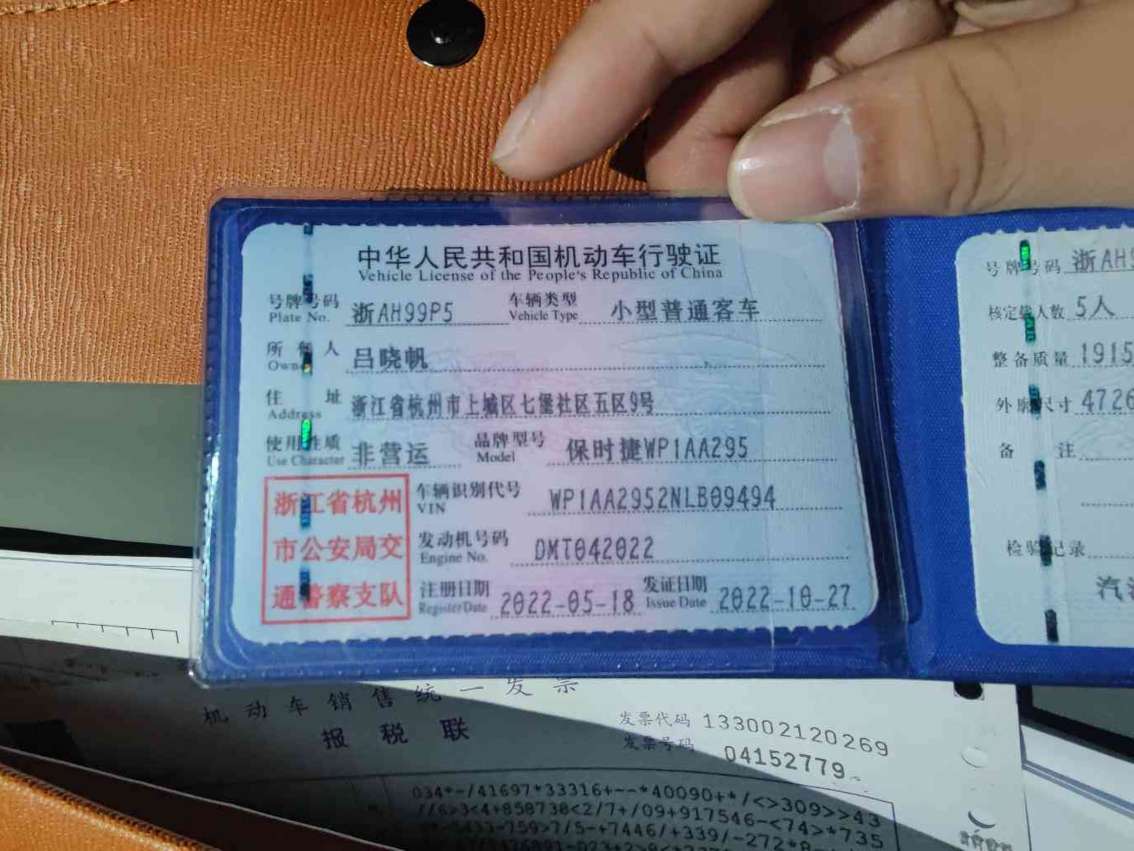 中华人民共和国机动车行驶证
Vehicle License of the People's Republic of China
号牌号码 浙AH99P5 车辆类型 小型普通客车
Plate No. Vehicle Type
所有人 吕晓帆
Owner
住址 浙江省杭州市上城区七堡社区五区9号
Address
使用性质 非营运 品牌型号 保时捷WP1AA295
Use Character Model
浙江省杭州
市公安局交
通警察支队
车辆识别代号 WP1AA2952NLB09494
VIN
发动机号码 DMT042022
Engine No.
注册日期 2022-05-18 发证日期 2022-10-27
Register Date Issue Date
号牌号码 浙AH9
核定载人数 5人
整备质量 1915
外廓尺寸 4726
备注
检验记录
汽
机动车销售统一发票
报税联
发票代码 133002120269
发票号码 04152779
034*-/41697*33316+--*40090+*/<>309>>43
//6>3<4+858738<2/7+/09+917546-<74>*735